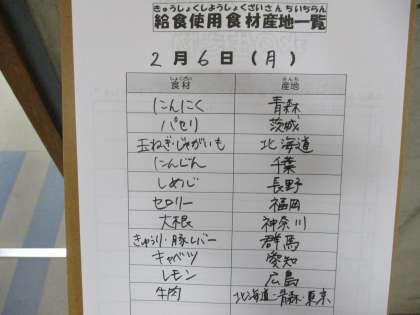 きゅうしょくしようしょくざいさんちいちらん
給食使用食材産地一覧
2月6日(月)
しょくざい さんち
食材 産地
にんにく 青森
パセリ 茨城
玉ねぎ・じゃがいも 北海道
にんじん 千葉
しめじ 長野
セロリー 福岡
大根 神奈川
きゅうり・豚レバー 群馬
キャベツ 愛知
レモン 広島
牛肉 北海道・青森・東京